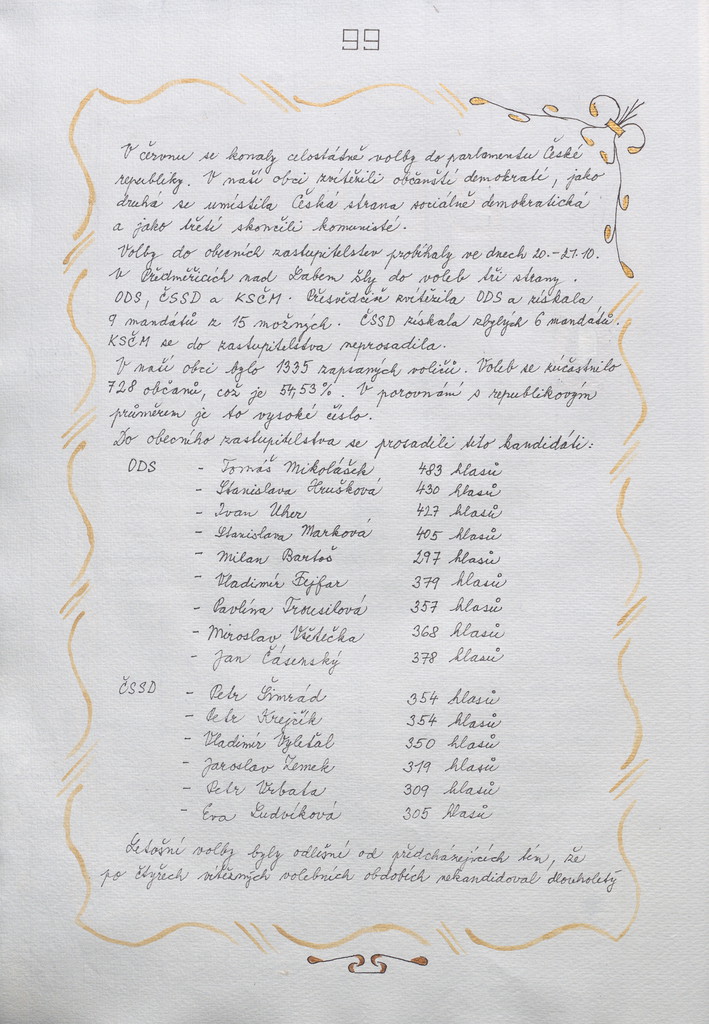 99
V červnu se konaly celostátně volby do parlamentu České
republiky. V naší obci zvítězili občanští demokraté, jako
druhá se umístila Česká strana sociálně demokratická
a jako třetí skončili komunisté.
Volby do obecních zastupitelstev probíhaly ve dnech 20.-21.10.
V Předměřicích nad Labem šly do voleb tři strany.
ODS, ČSSD a KSČM. Přesvědčivě zvítězila ODS a získala
9 mandátů z 15 možných. ČSSD získala zbylých 6 mandátů.
KSČM se do zastupitelstva neprosadila.
V naší obci bylo 1335 zapsaných voličů. Voleb se zúčastnilo
728 občanů, což je 54,53%. V porovnání s republikovým
průměrem je to vysoké číslo.
Do obecního zastupitelstva se prosadili tito kandidáti:
ODS - Tomáš Mikolášek 483 hlasů
- Stanislava Hrušková 430 hlasů
- Ivan Uher 427 hlasů
- Stanislava Marková 405 hlasů
- Milan Bartoš 297 hlasů
- Vladimír Fejfar 379 hlasů
- Pavlína Trousilová 357 hlasů
- Miroslav Všetečka 368 hlasů
- Jan Čásenský 378 hlasů
ČSSD - Petr Šimrád 354 hlasů
- Petr Krejčík 354 hlasů
- Vladimír Vyleťal 350 hlasů
- Jaroslav Zemek 319 hlasů
- Petr Vrbata 309 hlasů
- Eva Ludvíková 305 hlasů
Letošní volby byly odlišné od předcházejících tím, že
po čtyřech vítězných volebních obdobích nekandidoval dlouholetý